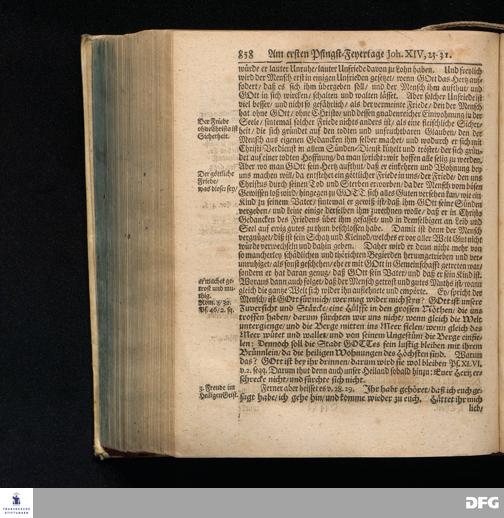 858 Am ersten Pfingst-Feyertage Joh. XIV, 23-31.
würde er lauter Unruhe/ lauter Unfriede davon zu Lohn haben. Und freylich
wird der Mensch erst in einigen Unfrieden gesetzt/ wenn GOtt das Hertz auf-
fodert/ daß es sich ihm übergeben soll/ und der Mensch ihm aufthut/ und
GOtt in sich wircken/ schalten und walten lässet. Aber solcher Unfriede ist
viel besser/ und nicht so gefährlich/ als der vermeinte Friede/ den der Mensch
hat ohne GOtt/ ohne Christo/ und dessen gnadenreicher Einwohnung in der
Der Friede
ohne Christo ist
Sicherheit.
Seele/ sintemal solcher Friede nichts anders ist/ als eine fleischliche Sicher-
heit/ die sich gründet auf den todten und unfruchtbaren Glauben/ den der
Mensch aus eigenen Gedancken ihm selber machet/ und wodurch er sich mit
Christi Verdienst in allem Sünden-Dienst kitzelt und tröstet/ der sich grün-
det auf einer todten Hoffnung/ da man spricht: wir hoffen alle selig zu werden.
Der göttliche
Friede/
was dieser sey/
Aber wo man GOtt sein Hertz aufthut/ daß er einkehren und Wohnung bey
uns machen will/ da entstehet ein göttlicher Friede in uns/ der Friede/ den uns
Christus durch seinen Tod und Sterben erworben/ da der Mensch vom bösen
Gewissen loß wird/ hingegen zu GOTT sich alles Guten versehen kan/ wie ein
Kind zu seinem Vater/ sintemal er gewiß ist/ daß ihm GOtt seine Sünden
vergeben/ und keine einige derselben ihm zurechnen wolle/ daß er in Christo
Gedancken des Friedens über ihn gefasset/ und in demselbigen an Leib und
Seel auf ewig gutes zu thun beschlossen habe. Damit ist denn der Mensch
vergnüget/ diß ist sein Schatz und Kleinod/ welches er vor aller Welt Gut nicht
würde verwechseln und dahin geben. Daher wird er denn nicht mehr von
so mancherley schädlichen und thörichten Begierden herumgetrieben und ver-
unruhiget/ als sonst geschehen/ ehe er mit GOtt in Gemeinschafft getreten war/
sondern er hat daran genug/ daß GOtt sein Vater/ und daß er sein Kind ist.
er machet ge-
trost und mu-
thig.
Röm. 8/30.
Ps. 46/2. sq.
Woraus dann auch folget/ daß der Mensch getrost und gutes Muths ist/ wann
gleich die gantze Welt sich wider ihn auflehnete und empörte. So spricht der
Mensch/ ist GOtt für mich/ wer mag wider mich seyn? GOtt ist unsere
Zuversicht und Stärcke/ eine Hülffe in den grossen Nöthen/ die uns
troffen haben/ darum fürchten wir uns nicht/ wenn gleich die Welt
untergienge/ und die Berge mitten ins Meer fielen/ wenn gleich das
Meer wütet und wallet/ und von seinem Ungestüm die Berge einfie-
len: Dennoch soll die Stadt GOTTes fein lustig bleiben mit ihrem
Brünnlein/ da die heiligen Wohnungen des Höchsten sind. Warum
das? GOtt ist bey ihr drinnen/ darum wird sie wol bleiben Ps. XLVI.
v. 2. seqq. Darum thut denn auch unser Heiland sobald hinzu: Euer Hertz er-
schrecke nicht/ und fürchte sich nicht.
3. Freude im
Heiligen Geist.
Ferner aber heisset es v. 28. 29. Ihr habt gehöret/ daß ich euch ge-
sagt habe/ ich gehe hin/ und komme wieder zu euch. Hättet ihr mich
lieb/
DFG